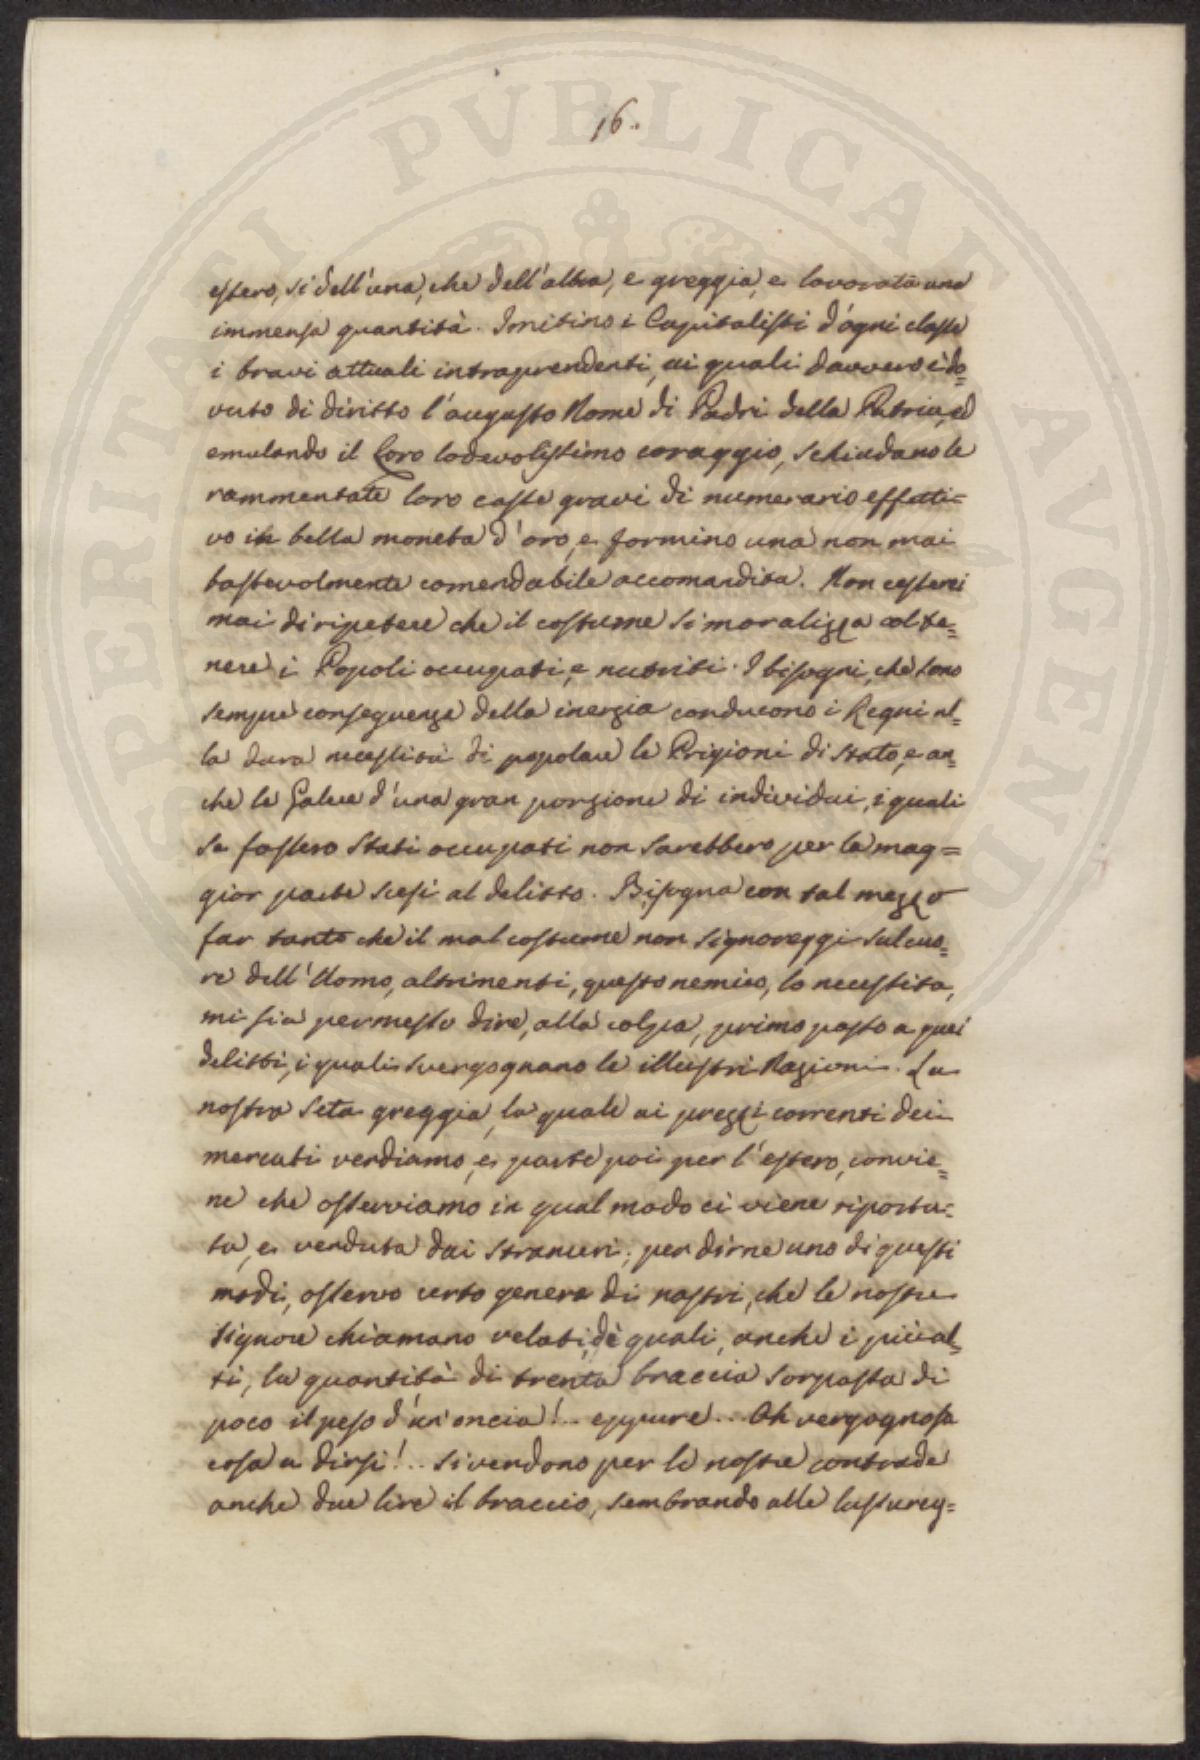 16.
estero, sì dell'una, che dell'altra, e greggia, e lavorata una
immensa quantità. Imitino i Capitalisti d'ogni classe
i bravi attuali intraprendenti, ai quali davvero è do=
vuto di diritto l'augusto Nome di Padri della Patria, ed
emulando il Loro lodevolissimo coraggio, schiudano le
rammentate loro casse gravi di numerario effetti=
vo in bella moneta d'oro, e formino una non mai
bastevolmente comendabile accomandita. Non cesserei
mai di ripetere che il costume si moralizza col te=
nere i Popoli occupati, e nutriti. I bisogni, che sono
sempre conseguenze della inerzia conducono i Regni al=
la dura necessità di popolare le Prigioni di stato, e an=
che le Galere d'una gran porzione di individui, i quali
se fossero stati occupati non sarebbero per la mag=
gior parte scesi al delitto. Bisogna con tal mezzo
far tanto che il mal costume non signoreggi sul cuo=
re dell'Uomo, altrimenti, questo nemico, lo necessita,
mi sia permesso dire, alla colpa, primo passo a quei
delitti, i quali svergognano le illustri Nazioni. La
nostra seta greggia, la quale ai prezzi correnti dei
mercati vendiamo, e parte poi per l'estero, convie=
ne che osserviamo in qual modo ci viene riporta=
ta, e venduta dai stranieri; per dirne uno di questi
modi, osservo certo genere di nastri, che le nostre
signore chiamano velati, de quali, anche i più al=
ti, la quantità di trenta braccia sorpassa di
poco il peso d'un'oncia!.. eppure.. Oh vergognosa
cosa a dirsi!.. si vendono per le nostre contrade
anche due lire il braccio, sembrando alle lussureg=
SPERITATI PVBLICAE AVGENDAE